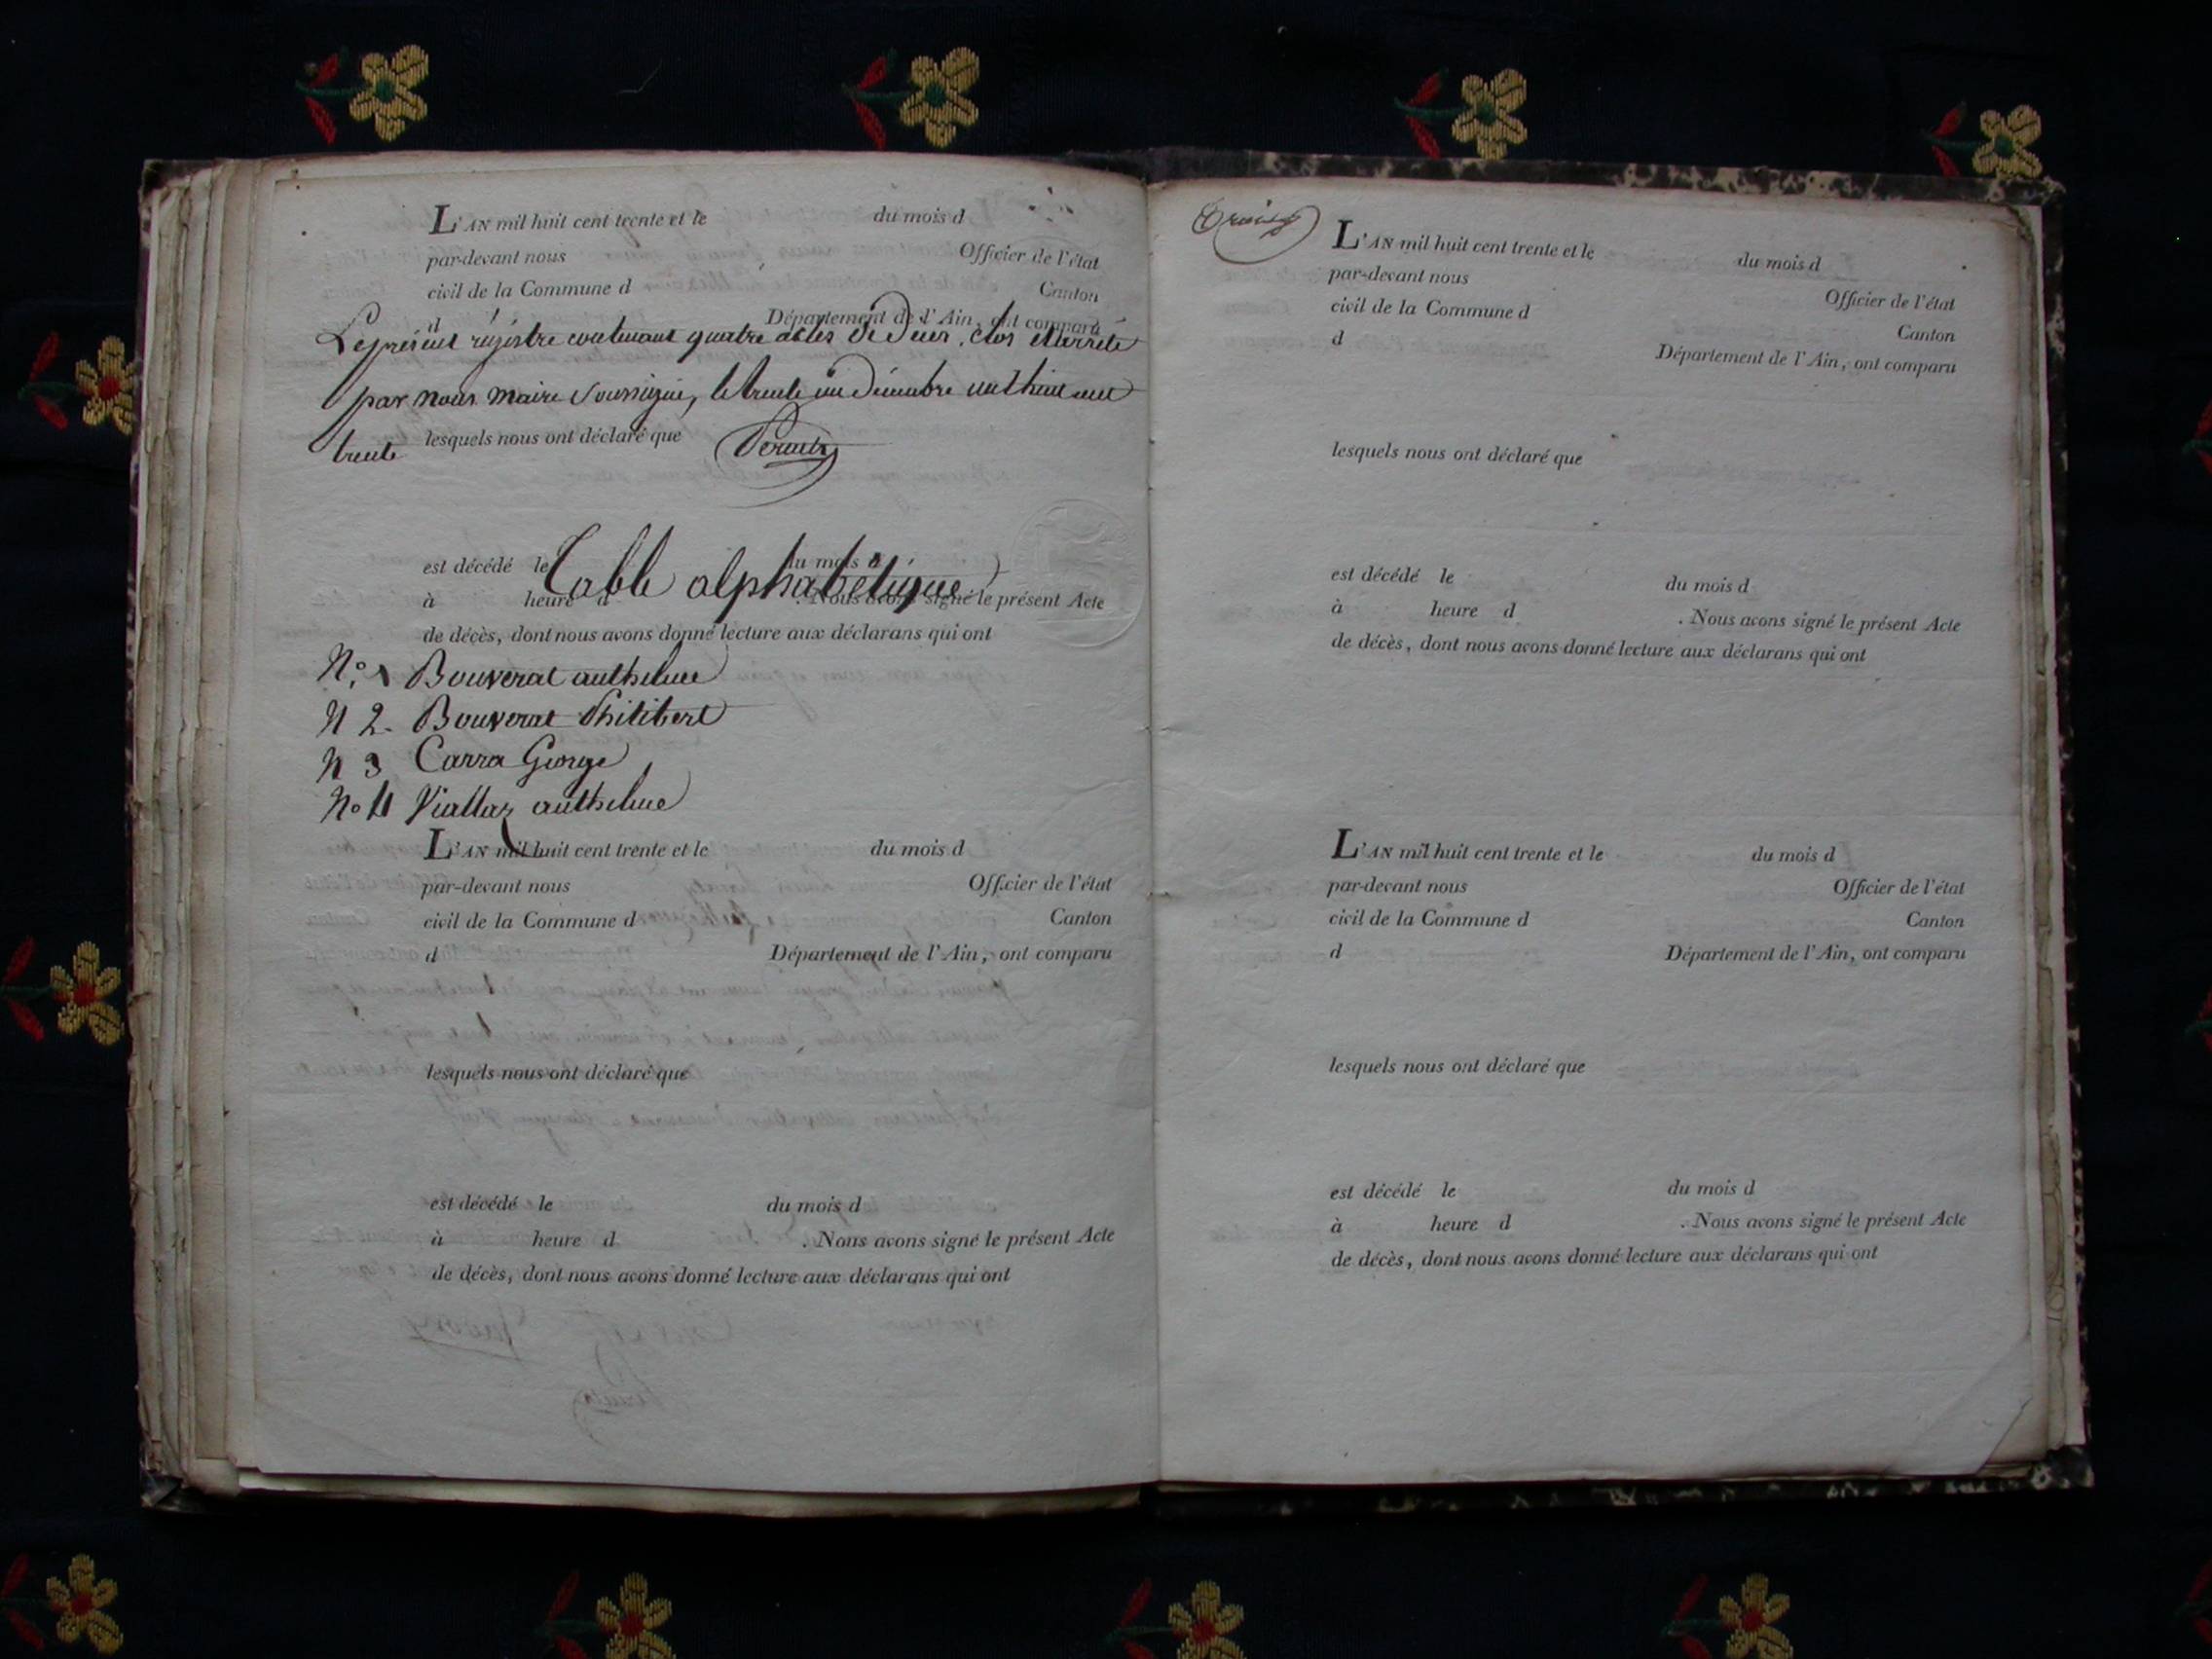 L'AN mil huit cent trente et le du mois d
par-devant nous Officier de l'état
civil de la Commune d Canton
d Département de l'Ain, ont comparu
Le présent régistre contenant quatre actes de Décès, clos et arrêté
par nous maire soussigné, le trente un Décembre mil huit cent
trente
lesquels nous ont déclaré que
Table alphabétique
est décédé le du mois d
à heure d . Nous avons signé le présent Acte
de décès, dont nous avons donné lecture aux déclarans qui ont
N.° 1 Bouverat anthelme
N 2. Bouverat Philibert
N 3 Carra George
No 4 Viallaz anthelme
L'AN mil huit cent trente et le du mois d
par-devant nous Officier de l'état
civil de la Commune d Canton
d Département de l'Ain, ont comparu
lesquels nous ont déclaré que
est décédé le du mois d
à heure d . Nous avons signé le présent Acte
de décès, dont nous avons donné lecture aux déclarans qui ont
L'AN mil huit cent trente et le du mois d
par-devant nous Officier de l'état
civil de la Commune d Canton
d Département de l'Ain, ont comparu
lesquels nous ont déclaré que
est décédé le du mois d
à heure d . Nous avons signé le présent Acte
de décès, dont nous avons donné lecture aux déclarans qui ont
L'AN mil huit cent trente et le du mois d
par-devant nous Officier de l'état
civil de la Commune d Canton
d Département de l'Ain, ont comparu
lesquels nous ont déclaré que
est décédé le du mois d
à heure d . Nous avons signé le présent Acte
de décès, dont nous avons donné lecture aux déclarans qui ont